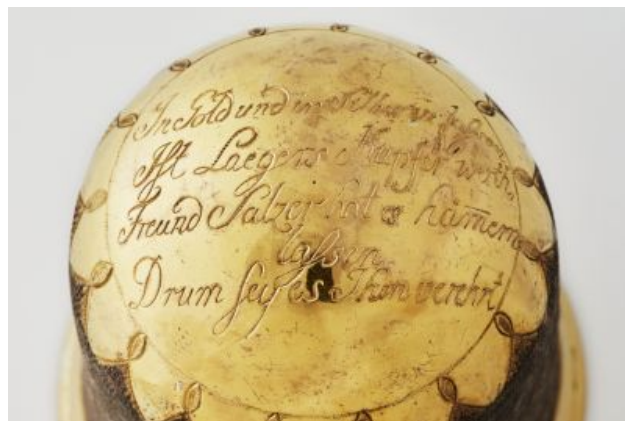 In Gold und
Ist Laegers Kupfer werth,
Freund Salzer hat es häm̄ern
laßen,
Drum sey es Ihm verehrt